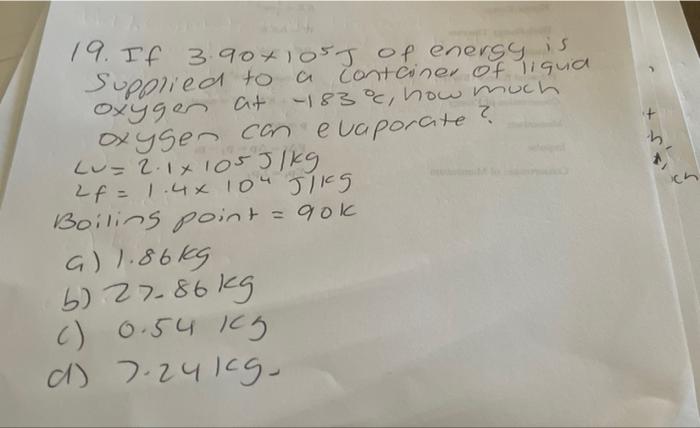 19. If 3.90 x 10⁵ J of energy is
supplied to a container of liquid
oxygen at -183 °c, how much
oxygen can evaporate?
Lv = 2.1 x 10⁵ J/kg
Lf = 1.4 x 10⁴ J/kg
Boiling point = 90k
a) 1.86kg
b) 27.86 kg
c) 0.54 kg
d) 7.24 kg.